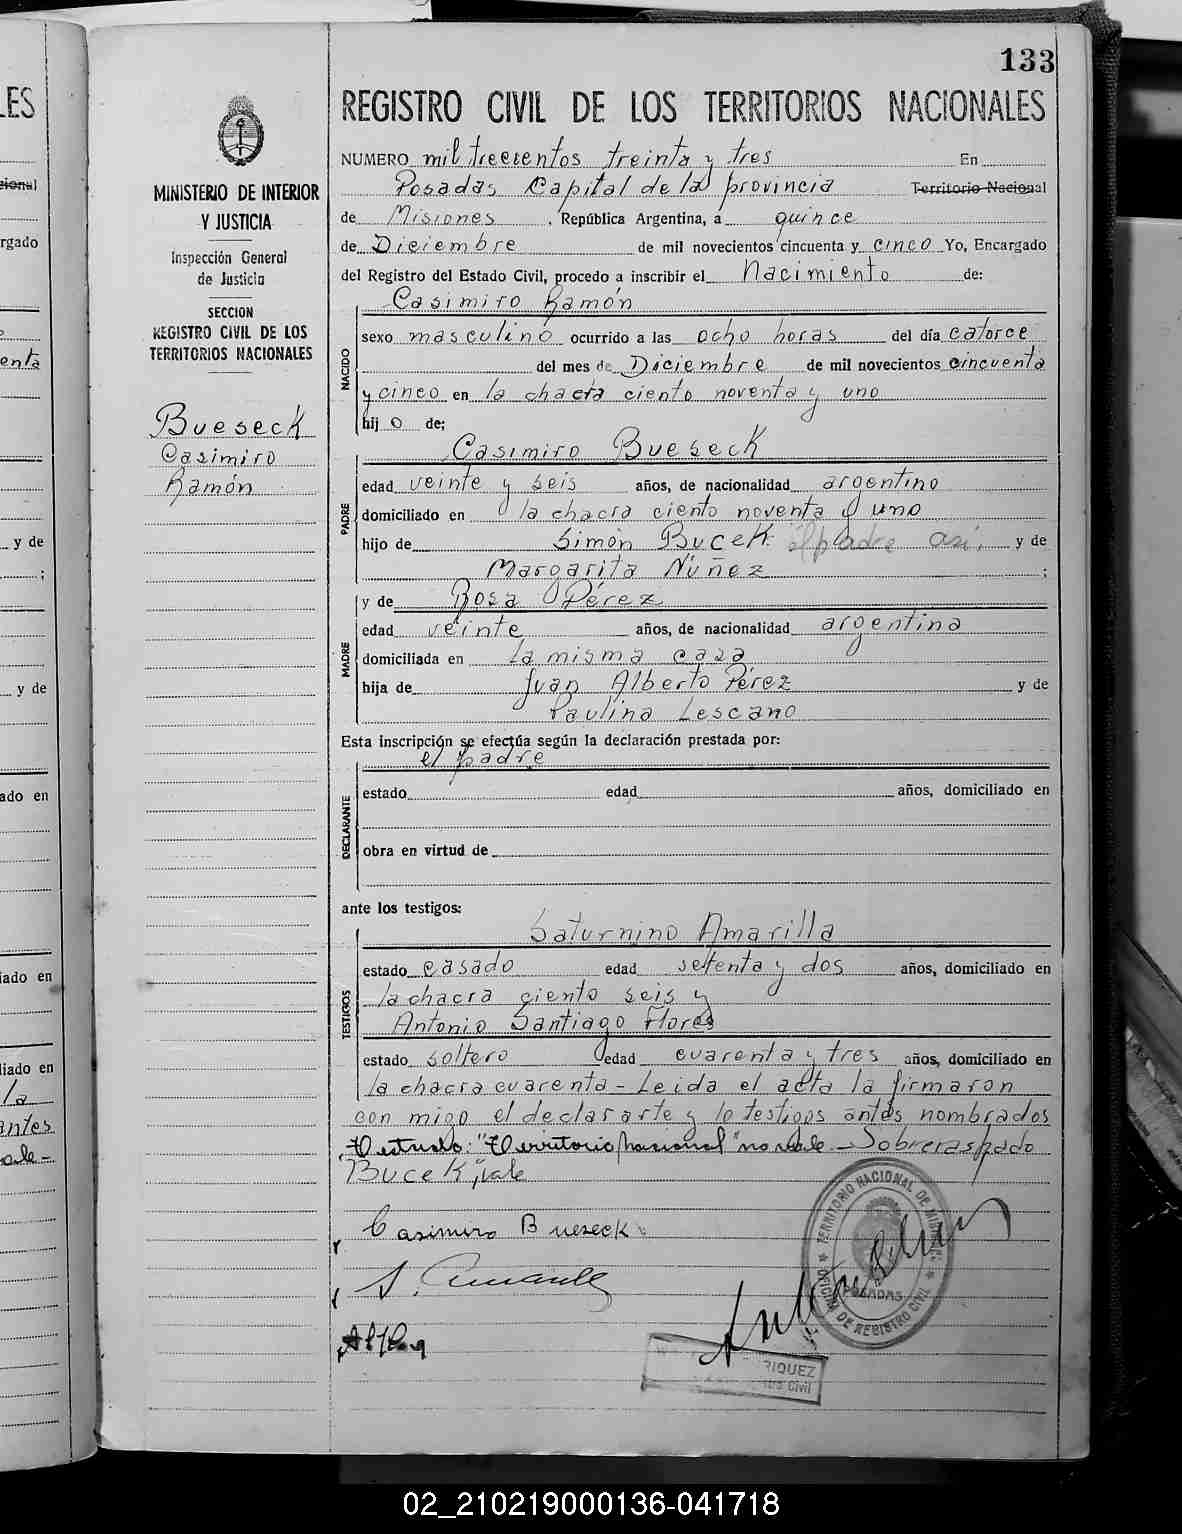 133
LES
REGISTRO CIVIL DE LOS TERRITORIOS NACIONALES
NUMERO mil trecentos treinta y tres En
Posadas Capital de la provincia Territorio Nacional
de Misiones , República Argentina, a quince
de Diciembre de mil novecientos cincuenta y cinco Yo, Encargado
del Registro del Estado Civil, procedo a inscribir el Nacimiento de:
MINISTERIO DE INTERIOR
Y JUSTICIA
Inspección General
de Justicia
SECCION
REGISTRO CIVIL DE LOS
TERRITORIOS NACIONALES
Bueseck
Casimiro
Ramón
NACIDO
Casimiro Ramón
sexo masculino ocurrido a las ocho horas del día catorce
del mes de Diciembre de mil novecientos cincuenta
y cinco en la chacra ciento noventa y uno
hij o de:
PADRE
Casimiro Bueseck
edad veinte y seis años, de nacionalidad argentino
domiciliado en la chacra ciento noventa y uno
hijo de Simón Bucek el padre asi, y de
Margarita Núñez ;
MADRE
y de Rosa Pérez
edad veinte años, de nacionalidad argentina
domiciliada en la misma casa
hija de Juan Alberto Pérez y de
Paulina Lescano
Esta inscripción se efectúa según la declaración prestada por:
el padre
DECLARANTE
estado edad años, domiciliado en
obra en virtud de
ante los testigos:
TESTIGOS
Saturnino Amarilla
estado casado edad setenta y dos años, domiciliado en
la chacra ciento seis y
Antonio Santiago Flores
estado soltero edad cuarenta y tres años, domiciliado en
la chacra cuarenta - Leida el acta la firmaron
con migo el declarante y lo testigos antes nombrados
Testado: "Territorio Nacional" no vale - Sobreraspado
Bucek", vale
Casimiro Bueseck
TERRITORIO NACIONAL DE MISIONES
POSADAS
OFICINA DE REGISTRO CIVIL
RIQUEZ
Civil
02_210219000136-041718